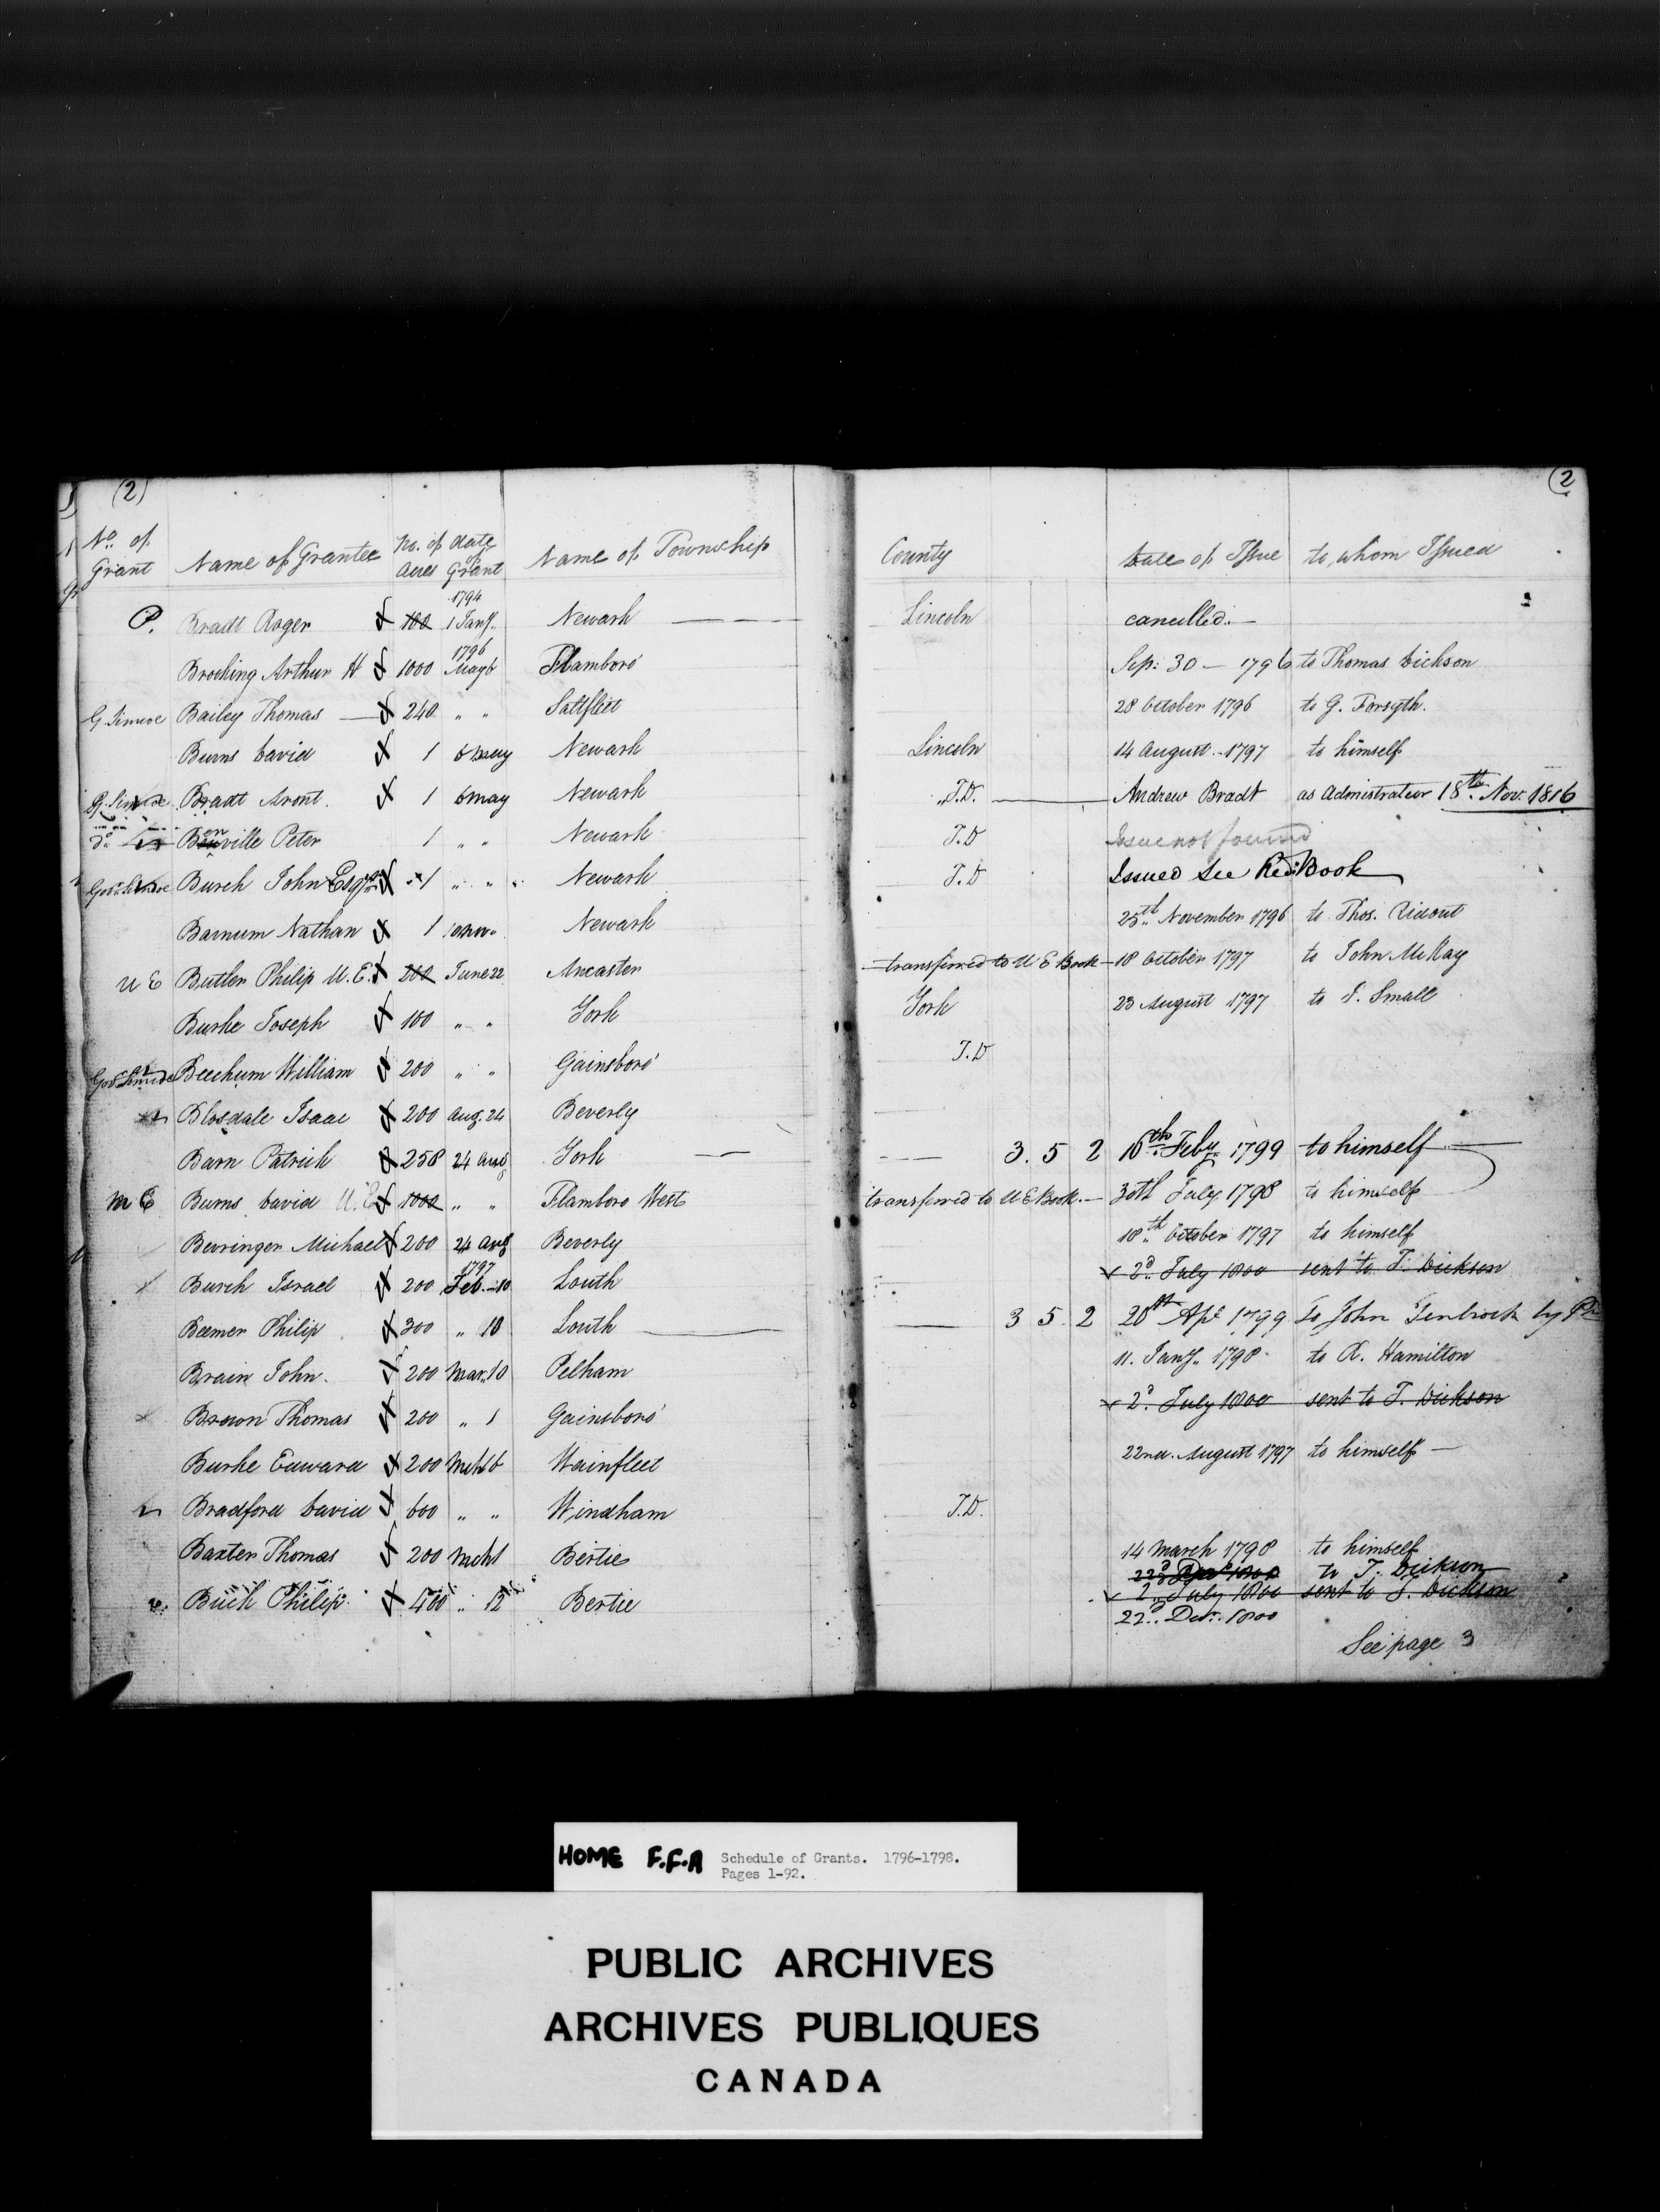 (2) (2
No. of Grant Name of Grantee No. of Acres date of Grant Name of Township County Date of Issue to whom Issued
P. Bradt Roger 100 1794 1 Jany. Newark Lincoln cancelled.
Brocking Arthur H 1000 1796 May 6 Flamboro' Sep: 30 — 1796 to Thomas Dickson
G. Simcoe Bailey Thomas 240 " " Saltfleet 28 October 1796 to G. Forsyth.
Burns David 1 6 May Newark Lincoln 14 August 1797 to himself
G. Simcoe Bradt Aront. 1 6 May Newark T.D. Andrew Bradt as Administrateur 18th. Nov. 1816
Do Bonville Peter 1 " " Newark T.D Issue not found
Govr. Simcoe Burch John Esqr 1 " " Newark T.D Issued See Red Book
Barnum Nathan 1 Newark 25th November 1796 to Thos. Ridout
U E Butler Philip U.E. 200 June 22 Ancaster transferred to U E Book 18 October 1797 to John McKay
Burke Joseph 100 " " York York 23 August 1797 to J. Small
Govr. Simcoe Beechum William 200 " " Gainsboro' T.D
Blosdale Isaac 200 Aug. 24 Beverly
Barn Patrick 258 24 Aug York 3. 5 2 16th Feby 1799 to himself
M E Burns David U.E 1000 " " Flamboro West transferred to U E Book. 30th July 1798 to himself
Berringer Michael 200 24 Aug Beverly 18th October 1797 to himself
Burch Israel 200 1797 Feb. 10 Louth 2d. July 1800 sent to T. Dickson
Beemer Philip 300 " 10 Louth 3 5 2 20th Apl 1799 To John Tenbrock by
Brain John. 200 Mar. 10 Pelham 11. Jany. 1798 to R. Hamilton
Brown Thomas 200 " 1 Gainsboro' 2d. July 1800 sent to T. Dickson
Burke Edward 200 Mch 6 Wainfleet 22nd. August 1797 to himself
Bradford David 600 " " Windham T.D.
Baxter Thomas 200 Mch 1 Bertie 14 March 1798 to himself
22d Decr 1800 to T. Dickson
Buck Philip 400 " 12 Bertie 2d. July 1800 sent to T. Dickson
22d. Decr. 1800
See page 3
HOME F.F.A Schedule of Grants. 1796-1798.
Pages 1-92.
PUBLIC ARCHIVES
ARCHIVES PUBLIQUES
CANADA